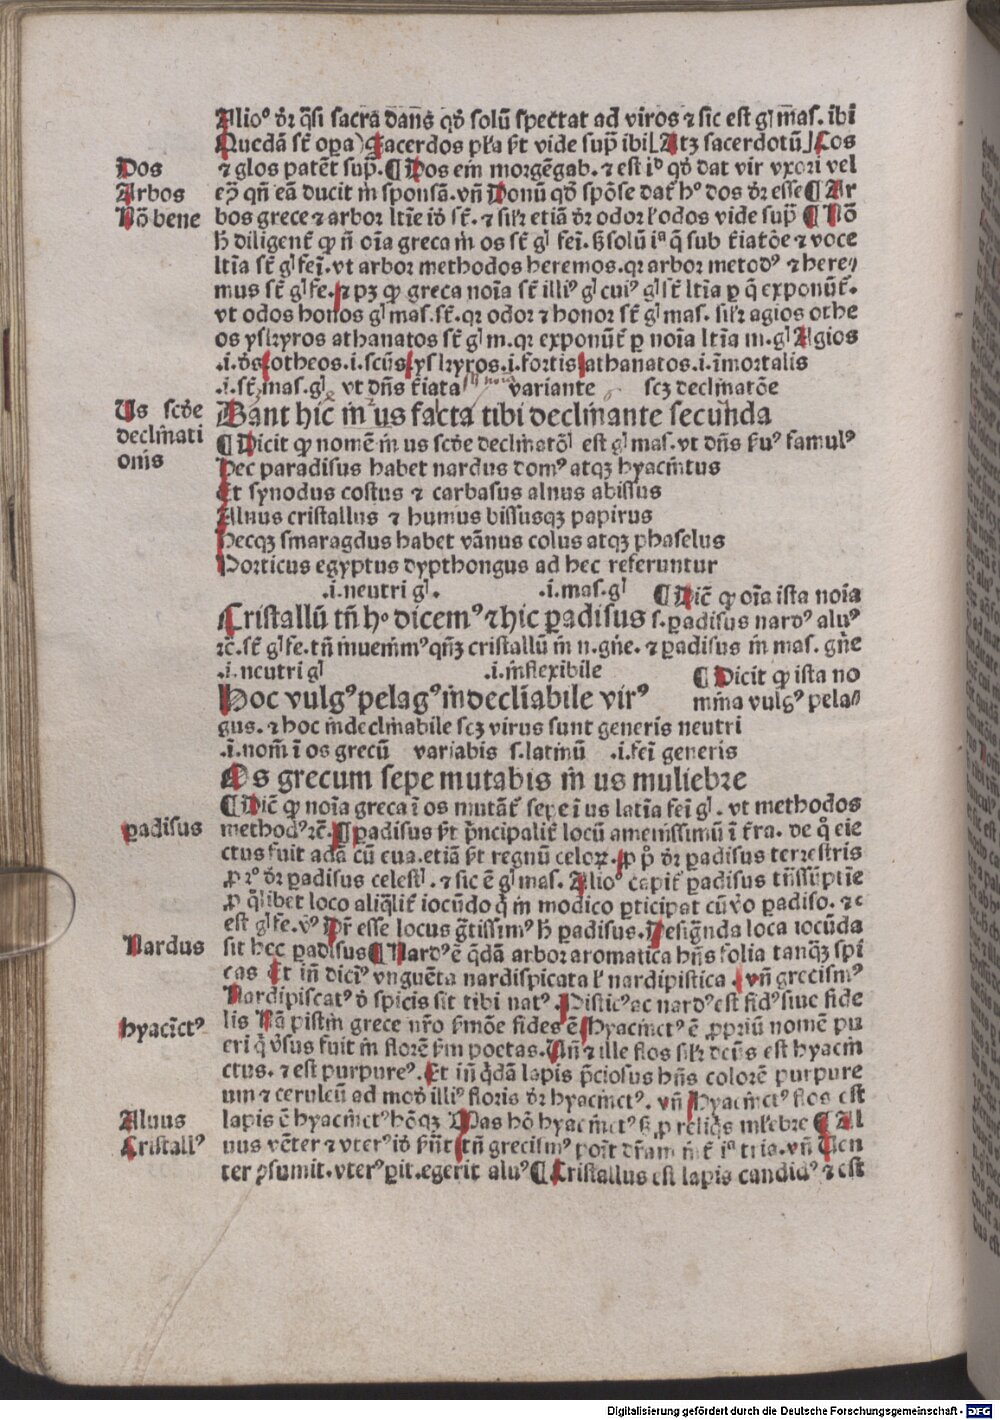 Alioꝰ dr̄ q̄si sacra dans qd̓ solū spectat ad viros ⁊ sic est gl̄ mas. ibi
Quedā st̄ opa) Sacerdos pl̄a s̄t vide sup̄ ibi [Atqꝫ sacerdotū] Cos
Dos
⁊ glos patēt sup̄. ¶ Dos em̄ morgēgab. ⁊ est id qd̓ dat vir vxori vel
Arbos
eꝰ qn̄ eā ducit in sponsā. vn̄ Donū qd̓ spōse dat̄ hͦ dos dr̄ esse ¶ Ar
Nō bene
bos grece ⁊ arbor ltīe id̓ st̄. ⁊ silr̄ etiā dr̄ odor l̓ odos vide sup̄ ¶ Nō
h̄ diligent̄ ꝙ n̄ oīa greca in os st̄ gl̄ fei. sꝫ solū ia q̄ sub t̄iatōe ⁊ voce
ltīa st̄ gl̄ fei. vt arbor methodos heremos. qr arbor metodꝰ ⁊ here⸗
mus st̄ gl̄ fe. ⁊ pꝫ ꝙ greca noīa st̄ illiꝰ gl̄ cuiꝰ gl̄ st̄ ltīa p q̄ exponūt̄.
vt odos honos gl̄ mas. st̄. qr odor ⁊ honor st̄ gl̄ mas. silr̄ agios othe
os yskyros athanatos st̄ gl̄ m. qr exponūt̄ p noīa ltīa m. gl̄ Agios
.i. dꝰs otheos .i. scūs yskyros .i. fortis athanatos .i. īmortalis
.i. st̄ mas. gl̄ vt dn̄s t̄iata variante scꝫ declinatōe
Us scd̓e
Dant hic in us facta tibi declinante secunda
declinati
¶ Dicit ꝙ nomē in us scd̓e declinatōl̄ est gl̄ mas. vt dn̄s ẜuꝰ famulꝰ
onis
Hec paradisus habet nardus domꝰ atqꝫ hyacintus
Et synodus costus ⁊ carbasus alnus abissus
Alnus cristallus ⁊ humus bissusqꝫ papirus
Hecqꝫ smaragdus habet vānus colus atqꝫ phaselus
Porticus egyptus dypthongus ad hec referuntur
.i. neutri gl̄. .i. mas. gl̄ ¶ Dic̄ ꝙ oīa ista noīa
Cristallū tn̄ hͦ dicemꝰ ⁊ hic padisus s. padisus nardꝰ aluꝰ
⁊c̄. st̄ gl̄ fe. tn̄ inuenimꝰ qn̄qꝫ cristallū in n. gn̄e. ⁊ padisus in mas. gn̄e
.i. neutri gl̄ .i. inflexibile ¶ Dicit ꝙ ista no
Hoc vulgꝰ pelagꝰ indecliabile virꝰ mina vulgꝰ pela⸗
gus. ⁊ hoc indeclinabile scꝫ virus sunt generis neutri
.i. nom̄ ī os grecū variabis s. latinū .i. fei generis
Os grecum sepe mutabis in us muliebre
¶ Dic̄ ꝙ noīa greca ī os mutāt̄ sepe ī us latīa fei gl̄. vt methodos
padisus
methodꝰ ⁊c̄. ¶ padisus s̄t p̄ncipalit̄ locū amenissimū ī t̄ra. de q̊ eie
ctus fuit adā cū eua. etiā s̄t regnū celoꝝ. p pͦ dr̄ padisus terrestris
ꝓ ⁊ͦ dr̄ padisus celestl̄. ⁊ sic ē gl̄ mas. Alioꝰ capit̄ padisus tn̄ssūptīe
ꝓ q̄libet loco aliq̄lit̄ iocūdo q̄ in modico pticipat cū vͦo padiso. ⁊c
est gl̄ fe. vꝰ Pr̄ esse locus gr̄tissimꝰ h̄ padisus. Designda loca iocūda
Nardus
sit hec padisus ¶ Nardꝰ ē q̄dā arbor aromatica hn̄s folia tanqꝫ spi
cas Et in̄ diciꝰ vnguēta nardispicata l̓ nardipistica. vn̄ grecismꝰ
Nardipiscatꝰ d̓ spicis sit tibi natꝰ. Pisticꝰ ac nardꝰ est fidꝰ siue fide
hyacīctꝰ
lis Nā pistin grece nr̄o ẜmōe fides ē Hyacinctꝰ ē ꝓpriū nomē pu
eri q̄ v̓sus fuit in florē ẜm poetas. Vn̄ ⁊ ille flos silr̄ dcūs est hyacin
ctus. ⁊ est purpureꝰ. Et in̄ q̄dā lapis p̄ciosus hn̄s colorē purpure
um ⁊ ceruleū ad mod̓ illiꝰ floris dr̄ hyacinctꝰ. vn̄ Hyacinctꝰ flos est
Aluus
lapis ē hyacinctꝰ hōqꝫ Mas hō hyacinctꝰ sꝫ ꝓ reliq̄s ml̓ebre ¶ Al
Cristallꝰ
nus vēter ⁊ vterꝰ id̓ ẜn̄t tn̄ grecismꝰ poīt dr̄am int̄ ia tria. vn̄ Uen
ter ꝯsumit. vterꝰ pit. egerit aluꝰ ¶ Cristallus est lapis candidꝰ ⁊ est
Digitalisierung gefördert durch die Deutsche Forschungsgemeinschaft - DFG